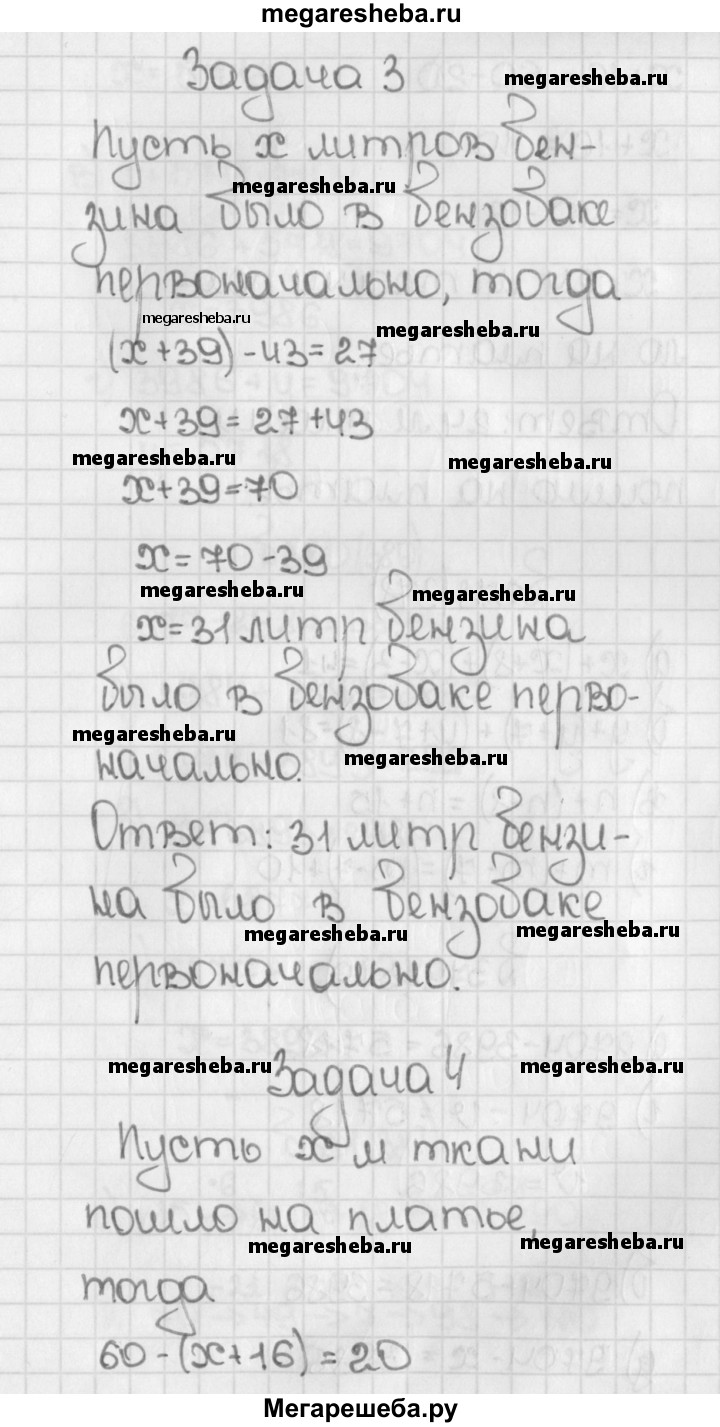 megaresheba.ru
Задача 3
megaresheba.ru
Пусть x литров бен-
megaresheba.ru
зина было в бензобаке
первоначально, тогда
megaresheba.ru
megaresheba.ru
(x+39)-43=27
x+39=27+43
megaresheba.ru
megaresheba.ru
x+39=70
x=70-39
megaresheba.ru
megaresheba.ru
x=31 литр бензина
было в бензобаке перво-
megaresheba.ru
megaresheba.ru
начально.
Ответ: 31 литр бензи-
на было в бензобаке
megaresheba.ru
megaresheba.ru
первоначально.
megaresheba.ru
megaresheba.ru
Задача 4
Пусть x м ткани
пошло на платье,
megaresheba.ru
megaresheba.ru
тогда
60-(x+16)=20
Мегарешеба.ру